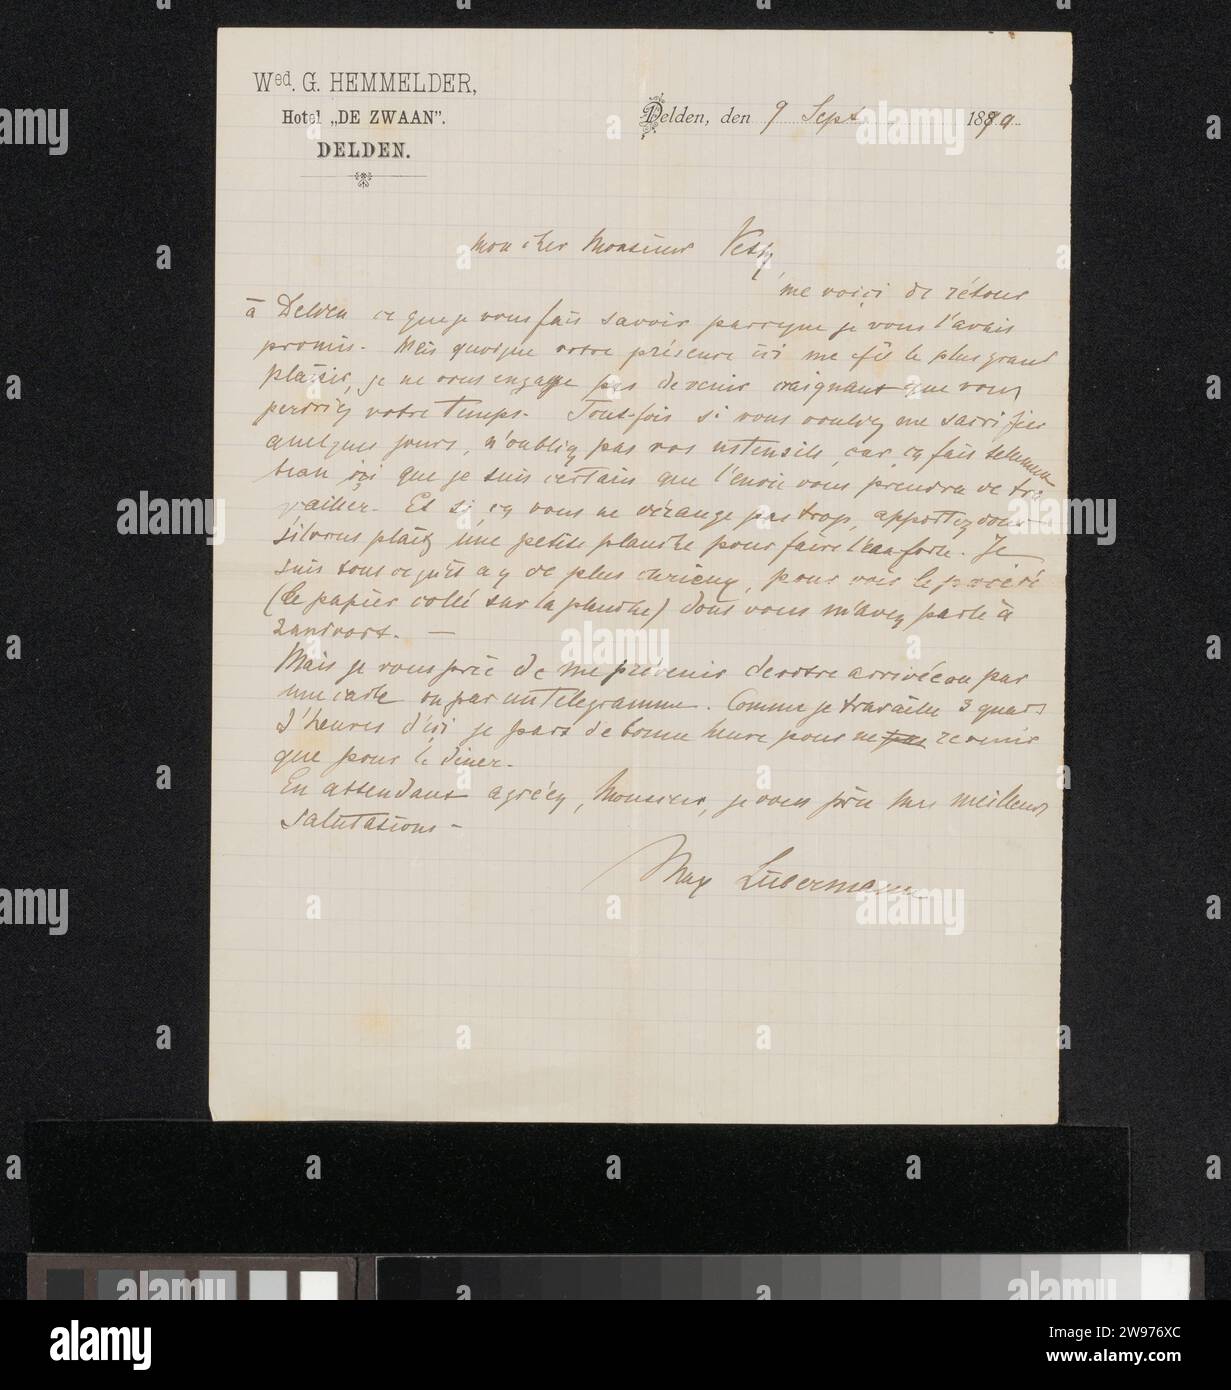 Wed. G. HEMMELDER,
Hotel „DE ZWAAN".
DELDEN.
Delden, den 9 Sept. 1890.
mon cher Monsieur Veth
me voici de rétour
à Delden ce que je vous fais savoir parceque je vous l'avais
promis. Mais quoique votre présence ici me fit le plus grand
plaisir, je ne vous engage pas de venir craignant que vous
perdriez votre temps. Tout-fois si vous voulez me sacrifier
quelques jours, n'oubliez pas vos ustensils, car, ça fait tellement
beau ici que je suis certain que l'envie vous prendra de tra-
vailler. Et si ça vous ne dérange pas trop, apportez donc
s'ilvous plaît une petite planche pour faire l'eau forte. Je
suis tous ce qu'il a y de plus curieux, pour voir le procédé
(le papier collé sur la planche) dont vous m'avez parlé à
Zandvort. —
Mais je vous prie de me prévenir de votre arrivée ou par
une carte ou par un télégramme. Comme je travaille 3 quarts
d'heures d'ici je pars de bonne heure pour ne pas revenir
que pour le diner.
En attendant agréez, Monsieur, je vous prie mes meilleurs
salutations –
Max Liebermann
alamy
Image ID: 2W976XC
www.alamy.com